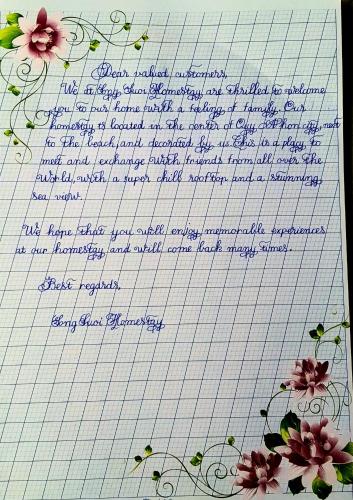 Dear valued customers,
We at Song Suoi Homestay are thrilled to welcome
you to our home with a feeling of family. Our
homestay is located in the center of Quy Nhon city, next
to the beach, and decorated by us. This is a place to
meet and exchange with friends from all over the
world, with a super chill rooftop and a stunning
sea view.
We hope that you will enjoy memorable experiences
at our homestay and will come back many times.
Best regards,
Song Suoi Homestay